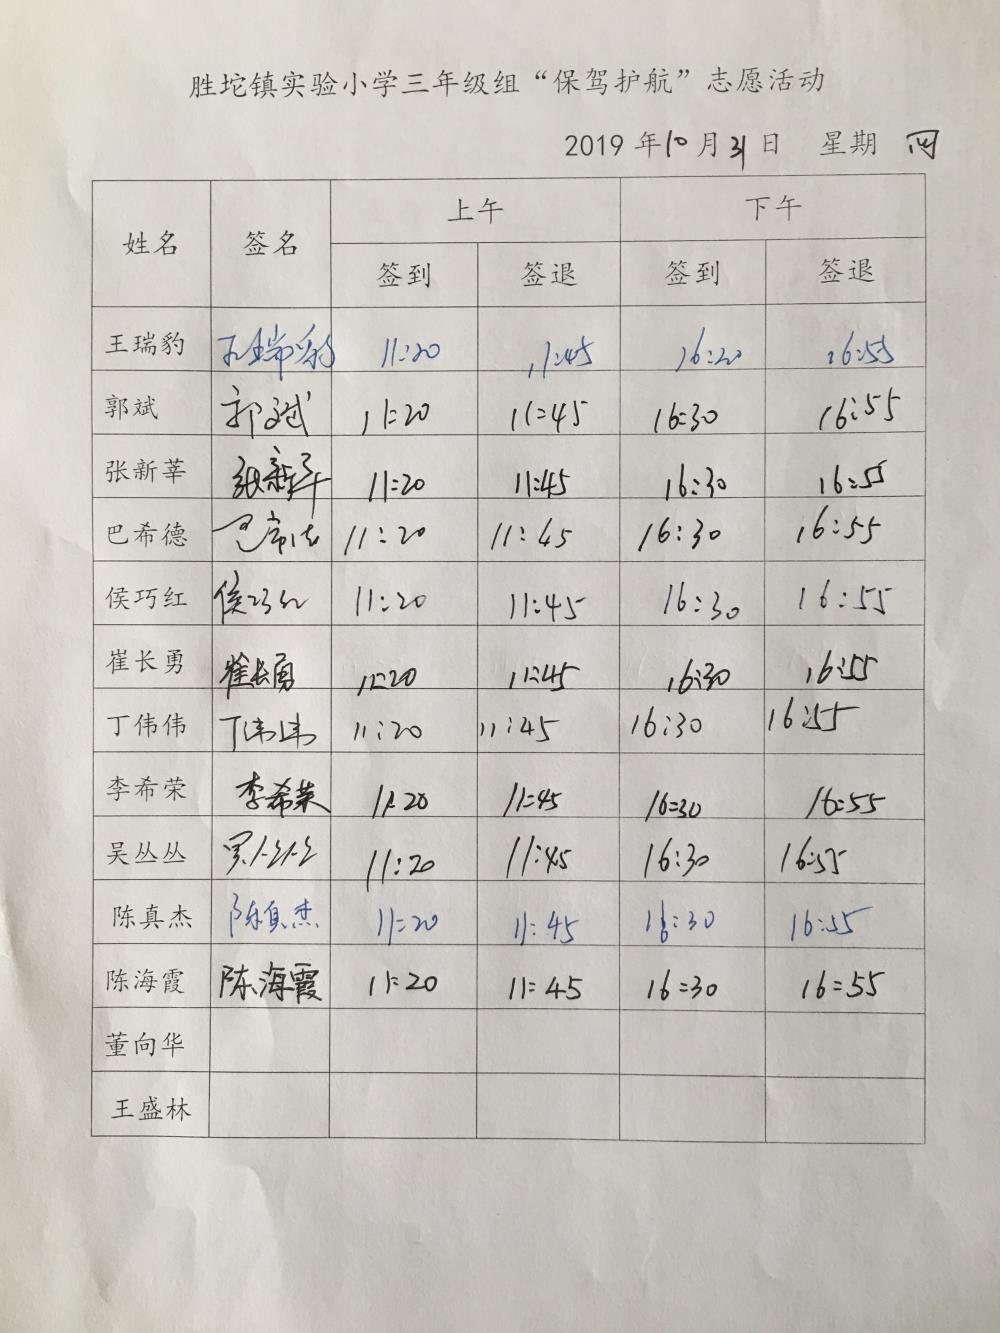 胜坨镇实验小学三年级组“保驾护航”志愿活动
2019 年10月31日 星期 四
姓名 签名 上午 下午
签到 签退 签到 签退
王瑞豹 王瑞豹 11:20 11:45 16:20 16:55
郭斌 郭斌 11:20 11:45 16:30 16:55
张新莘 张新莘 11:20 11:45 16:30 16:55
巴希德 巴希德 11:20 11:45 16:30 16:55
侯巧红 侯巧红 11:20 11:45 16:30 16:55
崔长勇 崔长勇 11:20 11:45 16:30 16:55
丁伟伟 丁伟伟 11:20 11:45 16:30 16:55
李希荣 李希荣 11:20 11:45 16:30 16:55
吴丛丛 吴丛丛 11:20 11:45 16:30 16:55
陈真杰 陈真杰 11:20 11:45 16:30 16:55
陈海霞 陈海霞 11:20 11:45 16:30 16:55
董向华
王盛林